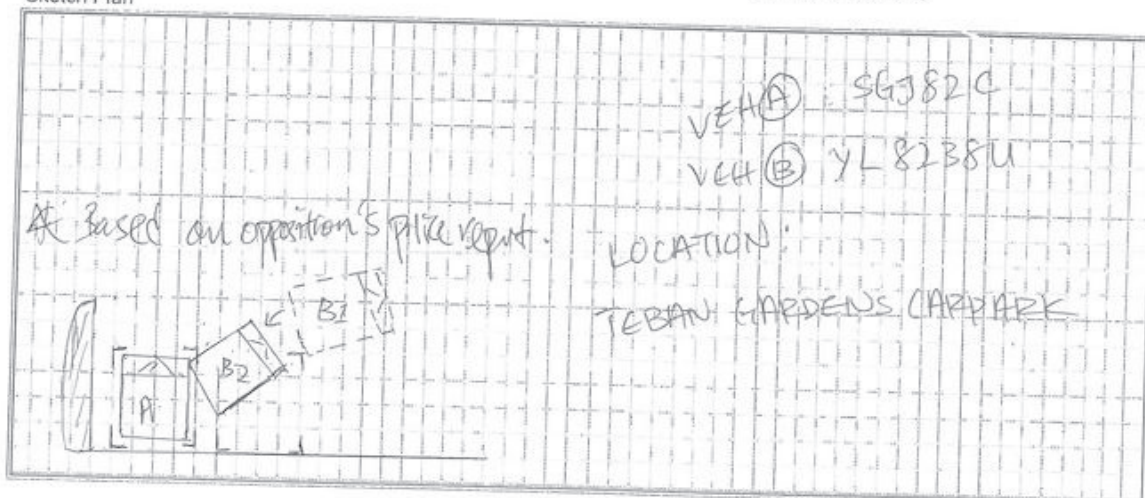 Sketch Plan
VEH Ⓐ : SGJ82C
VEH Ⓑ YL8238U
* Based on opposition's police report.
LOCATION:
TEBAN GARDENS CARPARK
B1
B2
A